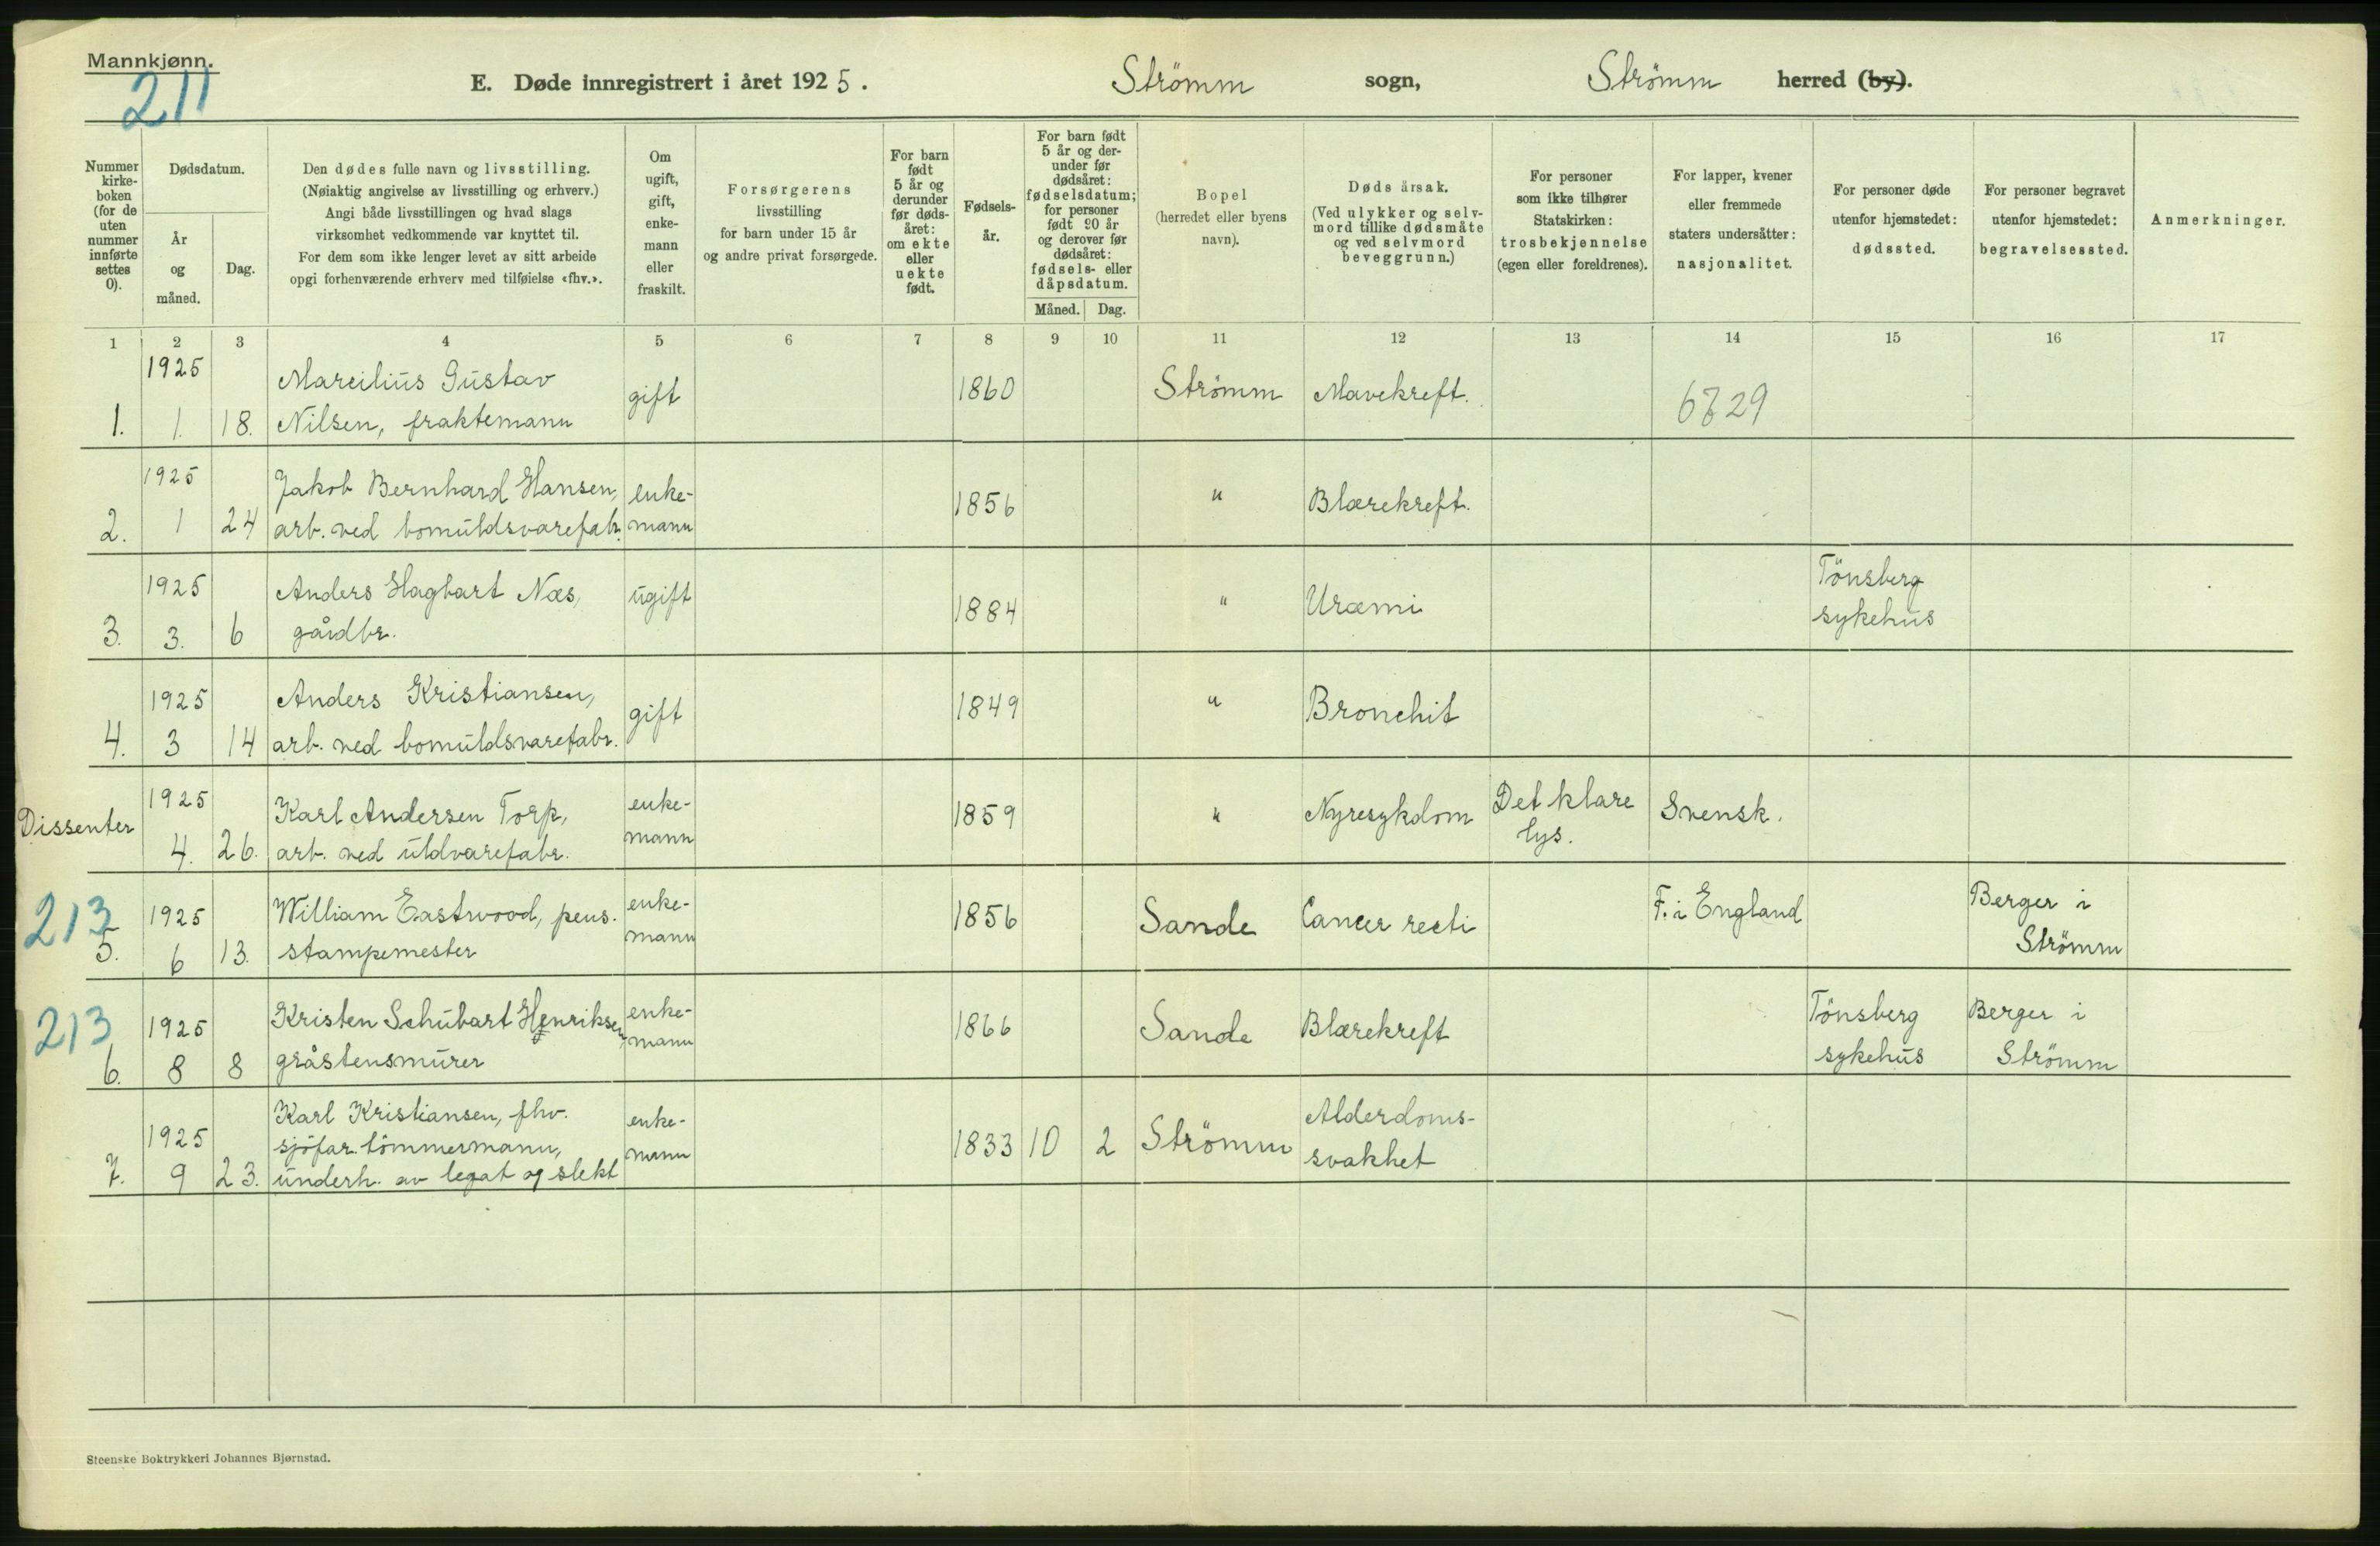 Mannkjønn.
211
E. Døde innregistrert i året 1925. Strömm sogn, Strömm herred (by).
Nummer kirke- boken (for de uten nummer innførte settes 0).
Dødsdatum.
År og måned.
Dag.
Den dødes fulle navn og livsstilling.
(Nøiaktig angivelse av livsstilling og erhverv.)
Angi både livsstillingen og hvad slags
virksomhet vedkommende var knyttet til.
For dem som ikke lenger levet av sitt arbeide
opgi forhenværende erhverv med tilføielse «fhv.».
Om ugift, gift, enke- mann eller fraskilt.
Forsørgerens
livsstilling
for barn under 15 år
og andre privat forsørgede.
For barn født 5 år og derunder før døds- året: om ekte eller uekte født.
Fødsels- år.
For barn født 5 år og der- under før dødsåret: fødselsdatum; for personer født 90 år og derover før dødsåret: fødsels- eller dåpsdatum.
Måned. Dag.
Bopel
(herredet eller byens
navn).
Døds årsak.
(Ved ulykker og selv-
mord tillike dødsmåte
og ved selvmord
beveggrunn.)
For personer
som ikke tilhører
Statskirken:
trosbekjennelse
(egen eller foreldrenes).
For lapper, kvener
eller fremmede
staters undersåtter:
nasjonalitet.
For personer døde
utenfor hjemstedet:
dødssted.
For personer begravet
utenfor hjemstedet:
begravelsessted.
Anmerkninger.
1 2 3 4 5 6 7 8 9 10 11 12 13 14 15 16 17
1925 Marcilius Gustav
1. 1. 18. Nilsen, fraktemann gift 1860 Strömm Mavekreft. 6729
1925 Jakob Bernhard Hansen, enke-
2. 1 24 arb. ved bomuldsvarefabr. mann 1856 " Blærekreft.
1925 Anders Hagbart Næs, ugift 1884 " Uræmi Tönsberg
3. 3. 6 gårdbr. sykehus
1925 Anders Kristiansen, gift 1849 " Bronchit
4. 3 14 arb. ved bomuldsvarefabr.
Dissenter 1925 Karl Andersen Torp, enke- 1859 " Nyresykdom Det klare Svensk.
4. 26. arb. ved uldvarefabr. mann lys.
213 1925 William Eastwood, pens. enke- 1856 Sande Cancer recti F. i England Berger i
5. 6 13. stampemester mann Strömm
213 1925 Kristen Schubart Henriksen, enke- 1866 Sande Blærekreft Tönsberg Berger i
6. 8 8 gråstensmurer mann sykehus Strömm
Karl Kristiansen, fhv. enke- Alderdoms-
1925 sjöfar. tömmermann, mann 1833 10 2 Strömm svakhet
7. 9 23. underh. av legat og slekt
Steenske Boktrykkeri Johannes Bjørnstad.